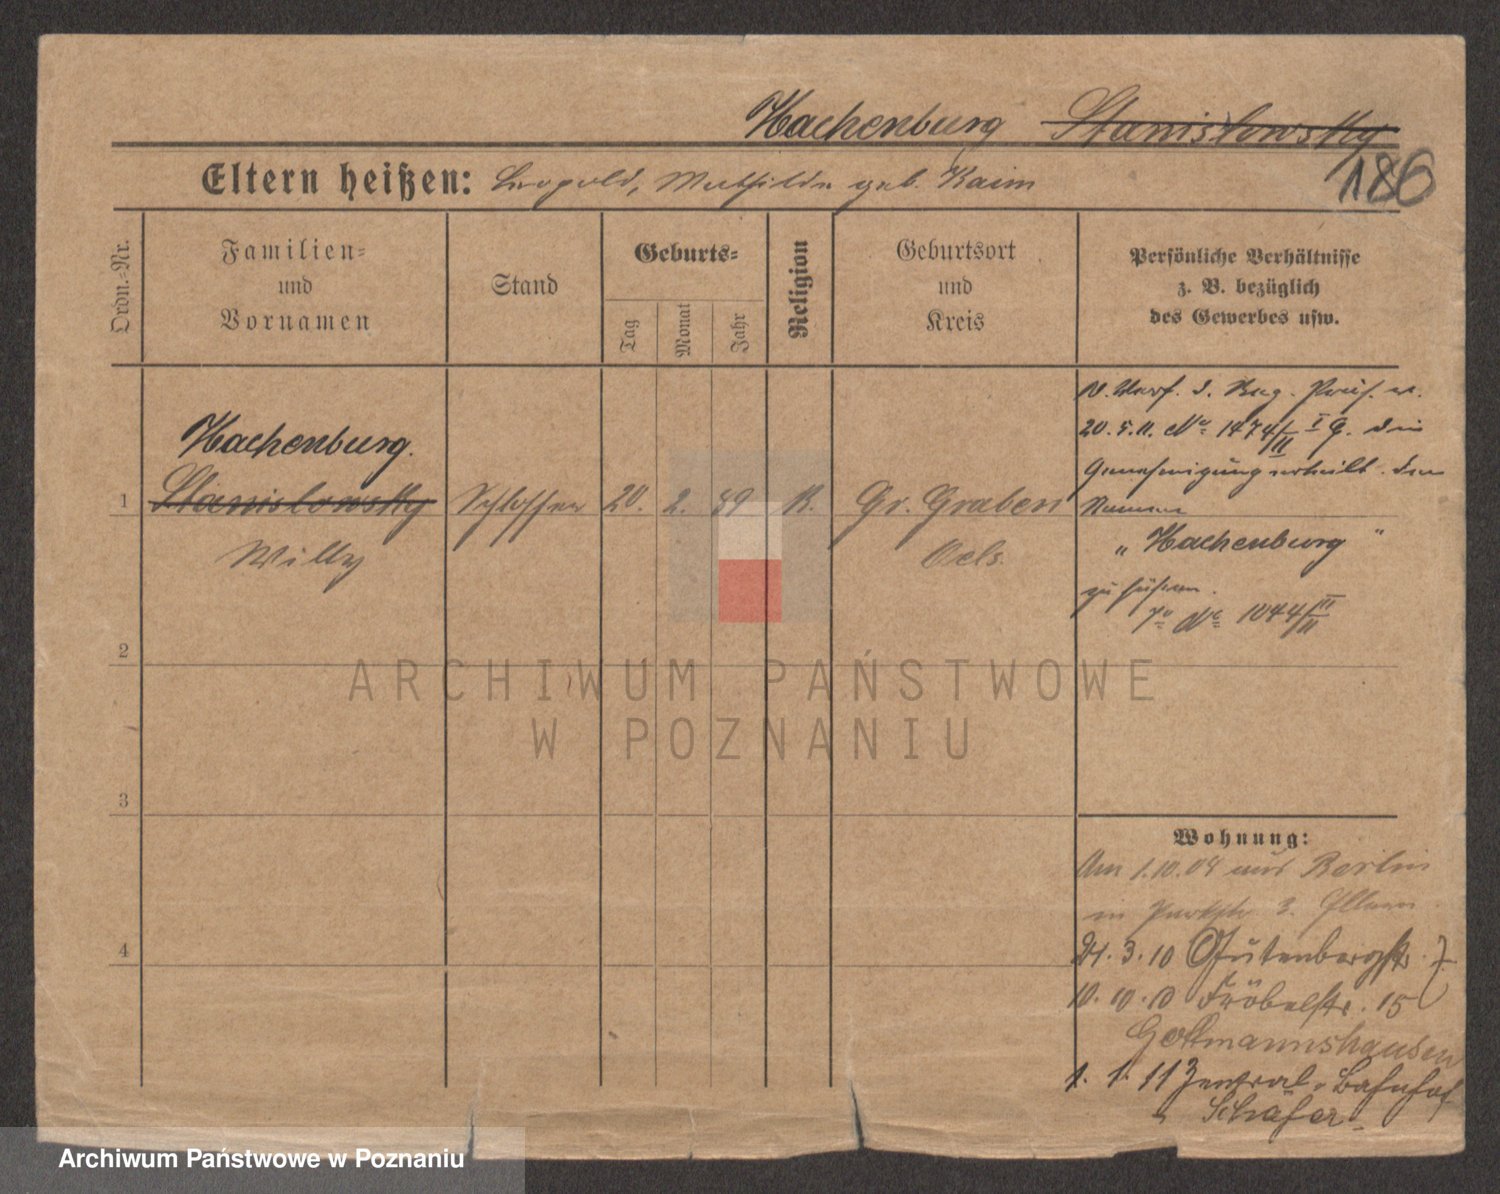 Hachenburg Stanislowsky
186
Eltern heißen: Leopold, Mathilde geb. Kaim
Ordn.-Nr.
Familien-
und
Vornamen
Stand
Geburts-
Tag
Monat
Jahr
Religion
Geburtsort
und
Kreis
Persönliche Verhältnisse
z. B. bezüglich
des Gewerbes usw.
Hachenburg.
1 Stanislowsky Schlosser 20. 2. 89 K. Gr. Graben
Willy Oels.
N. Verf. d. Reg. Präs. v.
20.5.11. No 1474/II I G. die
Genehmigung erteilt den
Namen
„Hachenburg"
zu führen.
Jo No 1044/II III
2
3
4
Wohnung:
Am 1.10.09 aus Berlin
in Parkstr 3.
21.3.10 Gutenbergstr. 7
10.10.10 Fröbelstr. 15
Gottmannshausen
1. 1. 11 Zentral-Bahnhof
Schäfer
ARCHIWUM PAŃSTWOWE
W POZNANIU
Archiwum Państwowe w Poznaniu